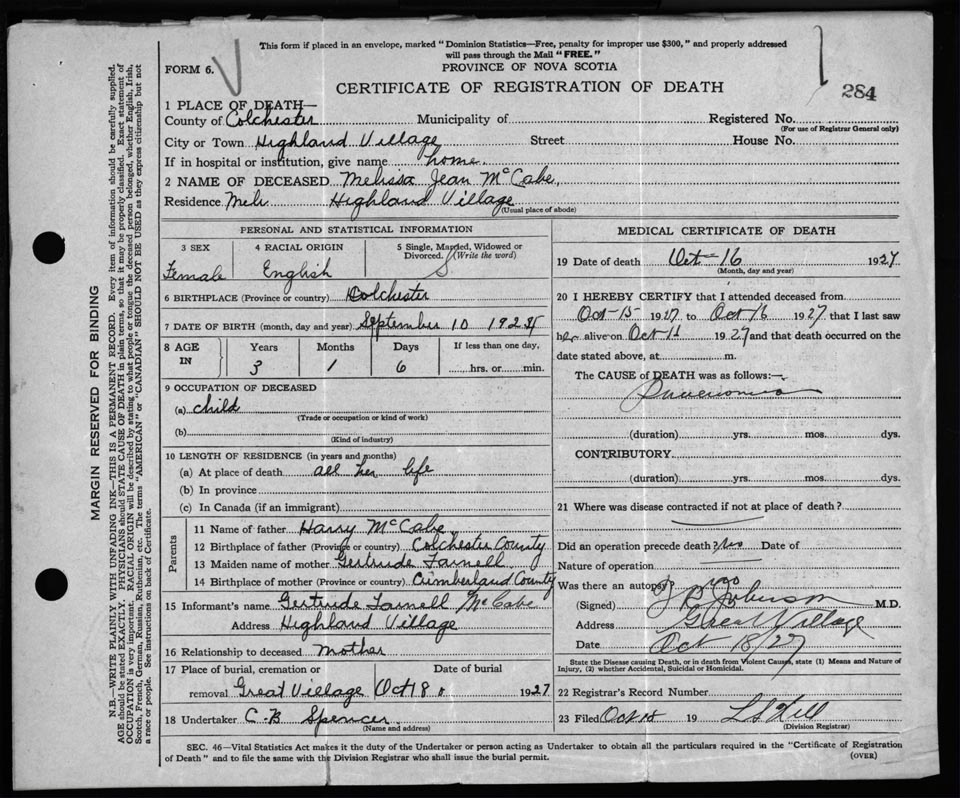 This form if placed in an envelope, marked "Dominion Statistics—Free, penalty for improper use $300," and properly addressed
will pass through the Mail "FREE."
FORM 6.
PROVINCE OF NOVA SCOTIA
CERTIFICATE OF REGISTRATION OF DEATH
284
1 PLACE OF DEATH—
County of Colchester Municipality of Registered No.
(For use of Registrar General only)
City or Town Highland Village Street House No.
If in hospital or institution, give name home.
2 NAME OF DECEASED Melissa Jean McCabe,
Residence Highland Village
(Usual place of abode)
PERSONAL AND STATISTICAL INFORMATION
3 SEX 4 RACIAL ORIGIN 5 Single, Married, Widowed or
Divorced. (Write the word)
Female English S
6 BIRTHPLACE (Province or country) Colchester
7 DATE OF BIRTH (month, day and year) September 10 192
8 AGE IN Years Months Days If less than one day,
3 1 6 hrs. or min.
9 OCCUPATION OF DECEASED
(a) child
(Trade or occupation or kind of work)
(b)
(Kind of industry)
10 LENGTH OF RESIDENCE (in years and months)
(a) At place of death all her life
(b) In province
(c) In Canada (if an immigrant)
Parents
11 Name of father Harry McCabe
12 Birthplace of father (Province or country) Colchester County
13 Maiden name of mother Gertrude Farnell
14 Birthplace of mother (Province or country) Cumberland County
15 Informant's name Gertrude Farnell McCabe
Address Highland Village
16 Relationship to deceased mother
17 Place of burial, cremation or Date of burial
removal Great Village Oct 18 1927
18 Undertaker C.B Spencer.
(Name and address)
MEDICAL CERTIFICATE OF DEATH
19 Date of death Oct 16 1927
(Month, day and year)
20 I HEREBY CERTIFY that I attended deceased from
Oct-15 1927 to Oct 16 1927 that I last saw
her alive on Oct 1927 and that death occurred on the
date stated above, at m.
The CAUSE of DEATH was as follows:—
Pneumonia
(duration) yrs. mos. dys.
CONTRIBUTORY
(duration) yrs. mos. dys.
21 Where was disease contracted if not at place of death?
Did an operation precede death? no Date of
Nature of operation
Was there an autopsy? no
(Signed) Johnson M.D.
Address Great Village
Date Oct 18/27
State the Disease causing Death, or in death from Violent Causes, state (1) Means and Nature of
Injury, (2) whether Accidental, Suicidal or Homicidal.
22 Registrar's Record Number
23 Filed Oct 18 19 Hill
(Division Registrar)
SEC. 46—Vital Statistics Act makes it the duty of the Undertaker or person acting as Undertaker to obtain all the particulars required in the "Certificate of Registration
of Death" and to file the same with the Division Registrar who shall issue the burial permit.
(OVER)
MARGIN RESERVED FOR BINDING
N.B.—WRITE PLAINLY WITH UNFADING INK—THIS IS A PERMANENT RECORD. Every item of information should be carefully supplied.
AGE should be stated EXACTLY. PHYSICIANS should STATE CAUSE OF DEATH in plain terms, so that it may be properly classified. Exact statement of
OCCUPATION is very important. RACIAL ORIGIN will be described by stating to what people or tongue the deceased person belonged, whether English, Irish,
Scotch, French, German, Russian, Ruthenian, etc. The terms "AMERICAN" or "CANADIAN" SHOULD NOT BE USED as they express citizenship but not
a race or people. See instructions on back of Certificate.